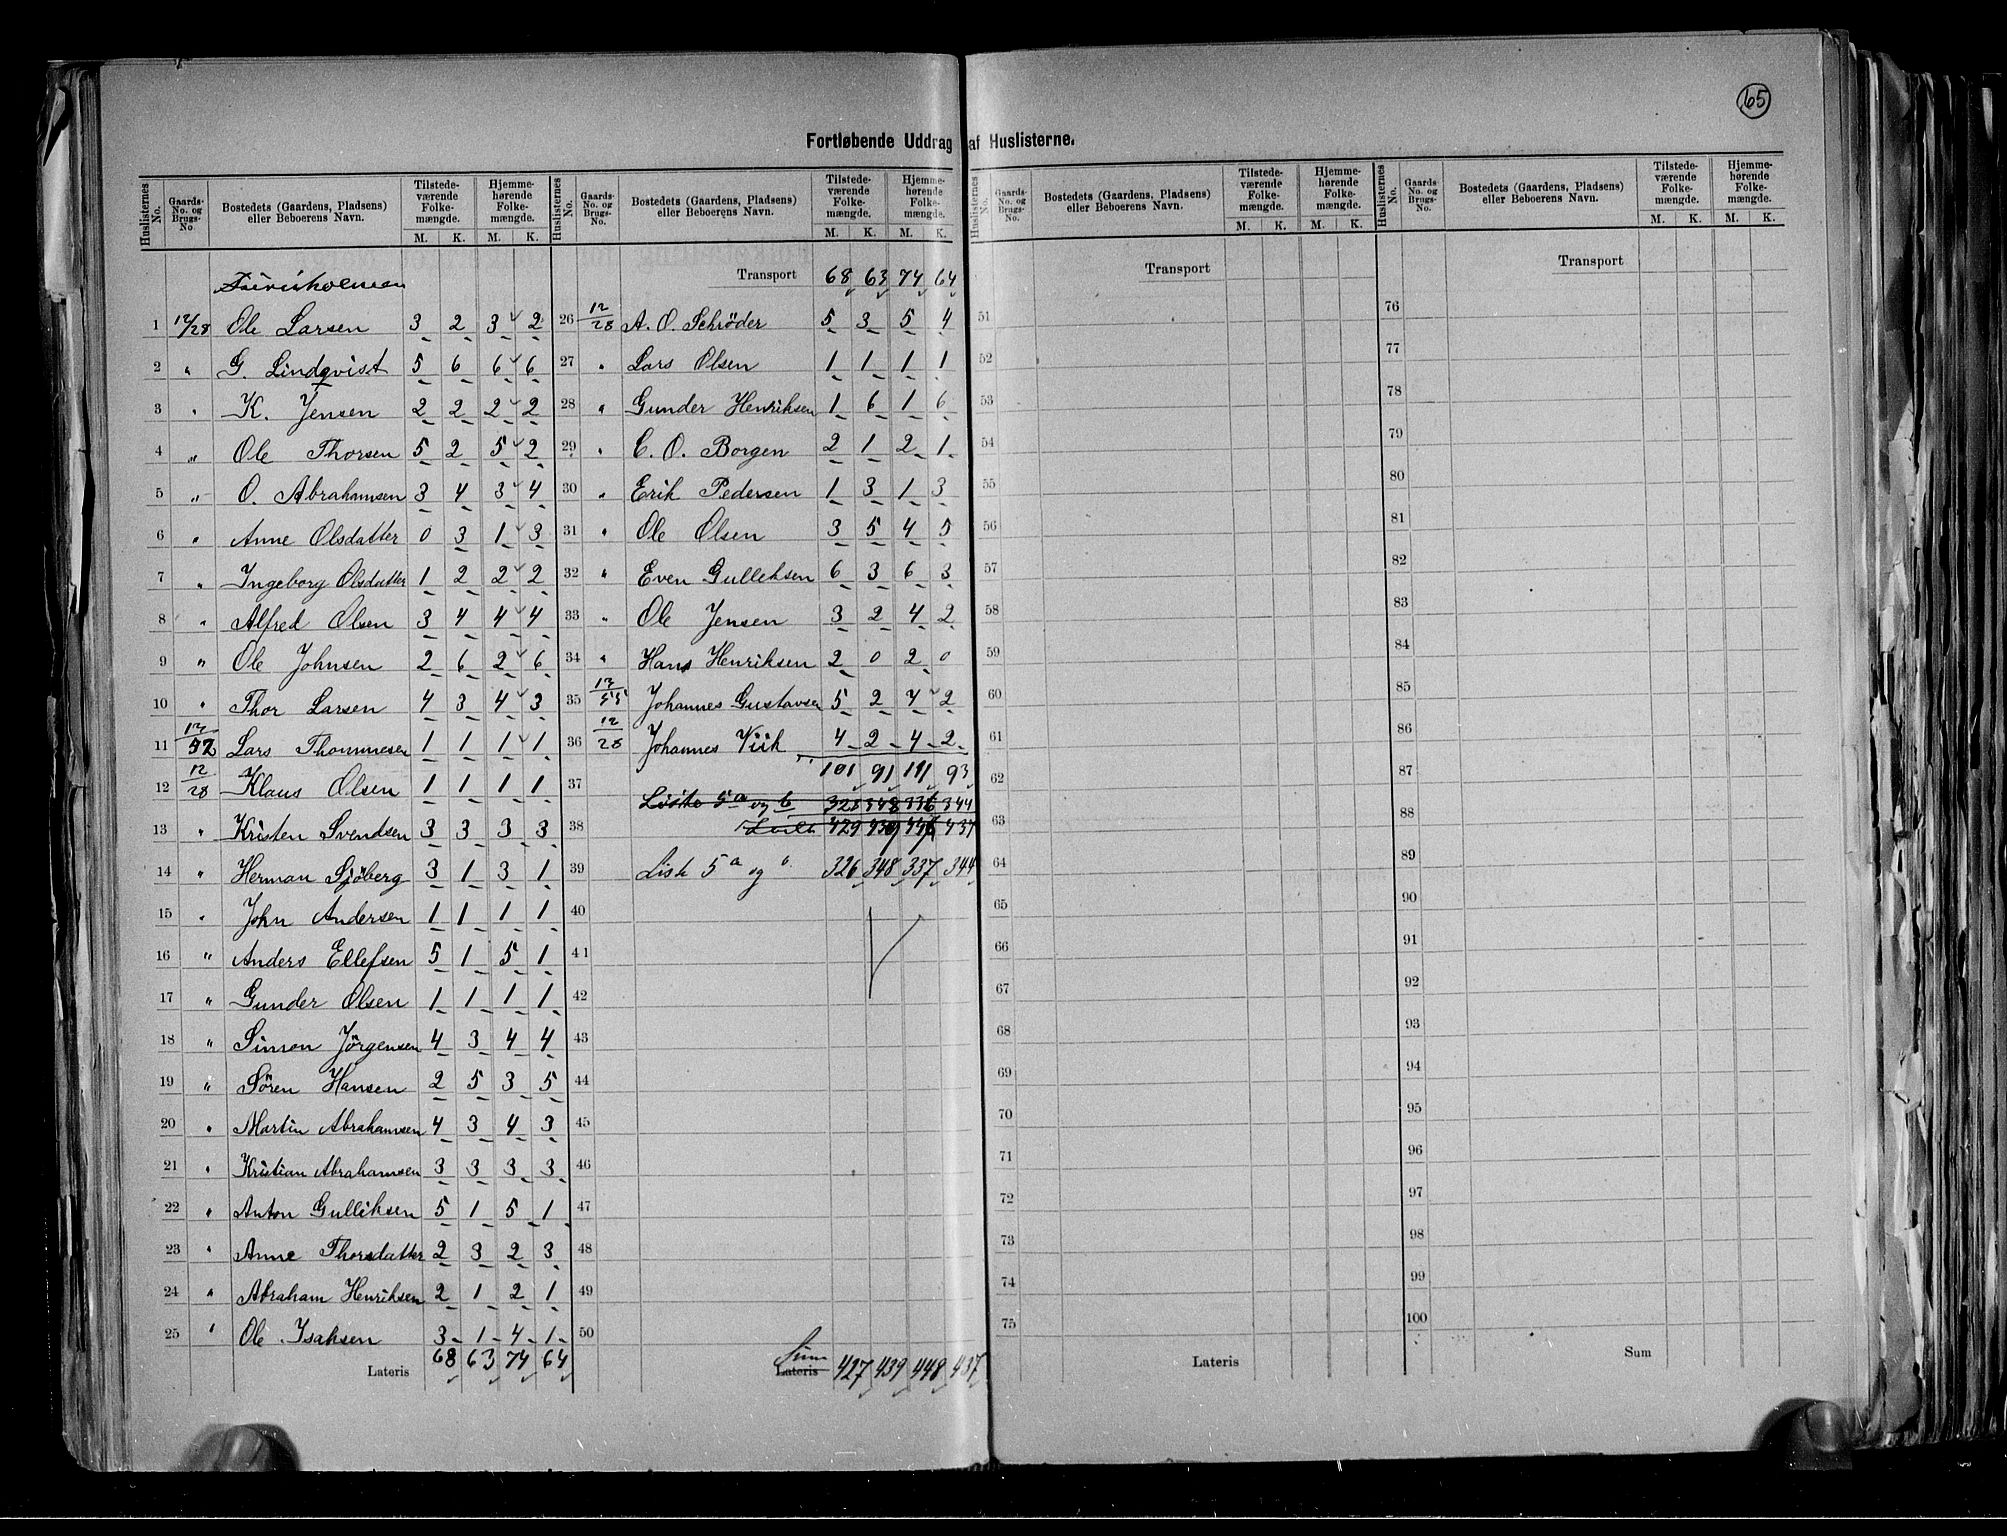 65
Fortløbende Uddrag af Huslisterne.
Huslisternes No. Gaards-No. og Brugs-No. Bostedets (Gaardens, Pladsens) eller Beboerens Navn. Tilstedeværende Folkemængde. M. K. Hjemmehørende Folkemængde. M. K.
1 12/28 Ole Larsen 3 2 3 2
2 " G. Lindqvist 5 6 6 6
3 " K. Jensen 2 2 2 2
4 " Ole Thorsen 5 2 5 2
5 " O. Abrahamsen 3 4 3 4
6 " Anne Olsdatter 0 3 1 3
7 " Ingeborg Olsdatter 1 2 2 2
8 " Alfred Olsen 3 4 4 4
9 " Ole Johnsen 2 6 2 6
10 " Thor Larsen 4 3 4 3
11 12/52 Lars Thommesen 1 1 1 1
12 12/28 Klaus Olsen 1 1 1 1
13 " Kristen Svendsen 3 3 3 3
14 " Herman Sjöberg 3 1 3 1
15 " John Andersen 1 1 1 1
16 " Anders Ellefsen 5 1 5 1
17 " Gunder Olsen 1 1 1 1
18 " Simon Jörgensen 4 3 4 4
19 " Sören Hansen 2 5 3 5
20 " Martin Abrahamsen 4 3 4 3
21 " Kristian Abrahamsen 3 3 3 3
22 " Anton Gulliksen 5 1 5 1
23 " Anne Thorsdatter 2 3 2 3
24 " Abraham Henriksen 2 1 2 1
25 " Ole Isaksen 3 1 4 1
Lateris 68 63 74 64
Huslisternes No. Gaards-No. og Brugs-No. Bostedets (Gaardens, Pladsens) eller Beboerens Navn. Tilstedeværende Folkemængde. M. K. Hjemmehørende Folkemængde. M. K.
Transport 68 63 74 64
26 12/28 A. O. Schrøder 5 3 5 4
27 " Lars Olsen 1 1 1 1
28 " Gunder Henriksen 1 6 1 6
29 " C. O. Borgen 2 1 2 1
30 " Erik Pedersen 1 3 1 3
31 " Ole Olsen 3 5 4 5
32 " Even Gulliksen 6 3 6 3
33 " Ole Jensen 3 2 4 2
34 " Hans Henriksen 2 0 2 0
35 12/55 Johannes Gustavsen 5 2 7 2
36 12/28 Johannes Viik 4 2 4 2
101 91 111 93
37 Liste 5a og b 344
38 429 437
39 Liste 5a og b 326 348 337 344
40
41
42
43
44
45
46
47
48
49
50
Sum Lateris 427 439 448 437
Huslisternes No. Gaards-No. og Brugs-No. Bostedets (Gaardens, Pladsens) eller Beboerens Navn. Tilstedeværende Folkemængde. M. K. Hjemmehørende Folkemængde. M. K.
Transport
51
52
53
54
55
56
57
58
59
60
61
62
63
64
65
66
67
68
69
70
71
72
73
74
75
Lateris
Huslisternes No. Gaards-No. og Brugs-No. Bostedets (Gaardens, Pladsens) eller Beboerens Navn. Tilstedeværende Folkemængde. M. K. Hjemmehørende Folkemængde. M. K.
Transport
76
77
78
79
80
81
82
83
84
85
86
87
88
89
90
91
92
93
94
95
96
97
98
99
100
Sum